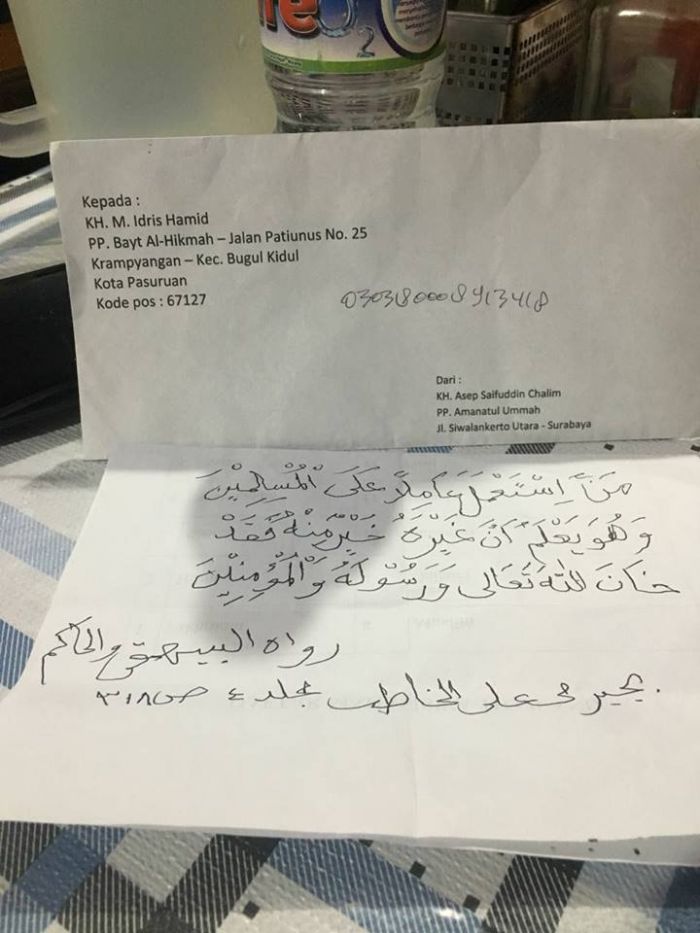 O2
Kepada :
KH. M. Idris Hamid
PP. Bayt Al-Hikmah – Jalan Patiunus No. 25
Krampyangan – Kec. Bugul Kidul
Kota Pasuruan
Kode pos : 67127
Dari :
KH. Asep Saifuddin Chalim
PP. Amanatul Ummah
Jl. Siwalankerto Utara - Surabaya
مَنْ اِسْتَعْمَلَ عَامِلاً عَلَى الْمُسْلِمِيْنَ
وَهُوَ يَعْلَمُ اَنَّ غَيْرَهُ خَيْرٌ مِنْهُ فَقَدْ
خَانَ اللهَ تَعَالَى وَرَسُوْلَهُ وَالْمُؤْمِنِيْنَ
رواه البيهقى والحاكم
بجيرمى على الخاطب مجلد ٤ ص ٣١٨